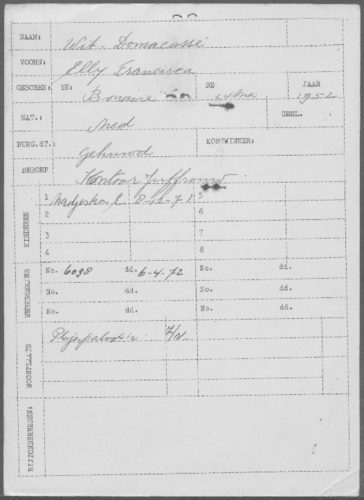 NAAM: Wit - Demacassé
VOORN: Elly Francisca
GEBOREN: IN: Bonaire DE JAAR 1952
NAT.: Ned GESL.
BURG.ST.: Gehuwd KOSTWINNER:
BEROEP Kantoor juffrouw
KINDEREN
1 E. 8-12-71 5
2 6
3 7
4 8
WERKVERGUNNINGEN
No. 6098 dd. 6-4-72 No. dd.
No. dd. No. dd.
No. dd. No. dd.
WOONPLAATS
BIJZONDERHEDEN: